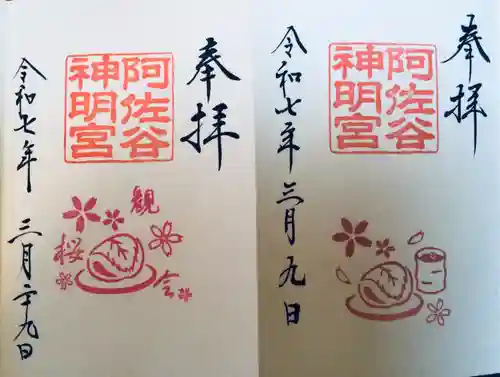 奉拝
阿佐谷
神明宮
令和七年 三月九日
奉拝
阿佐谷
神明宮
観
桜
会
令和七年 三月二十九日